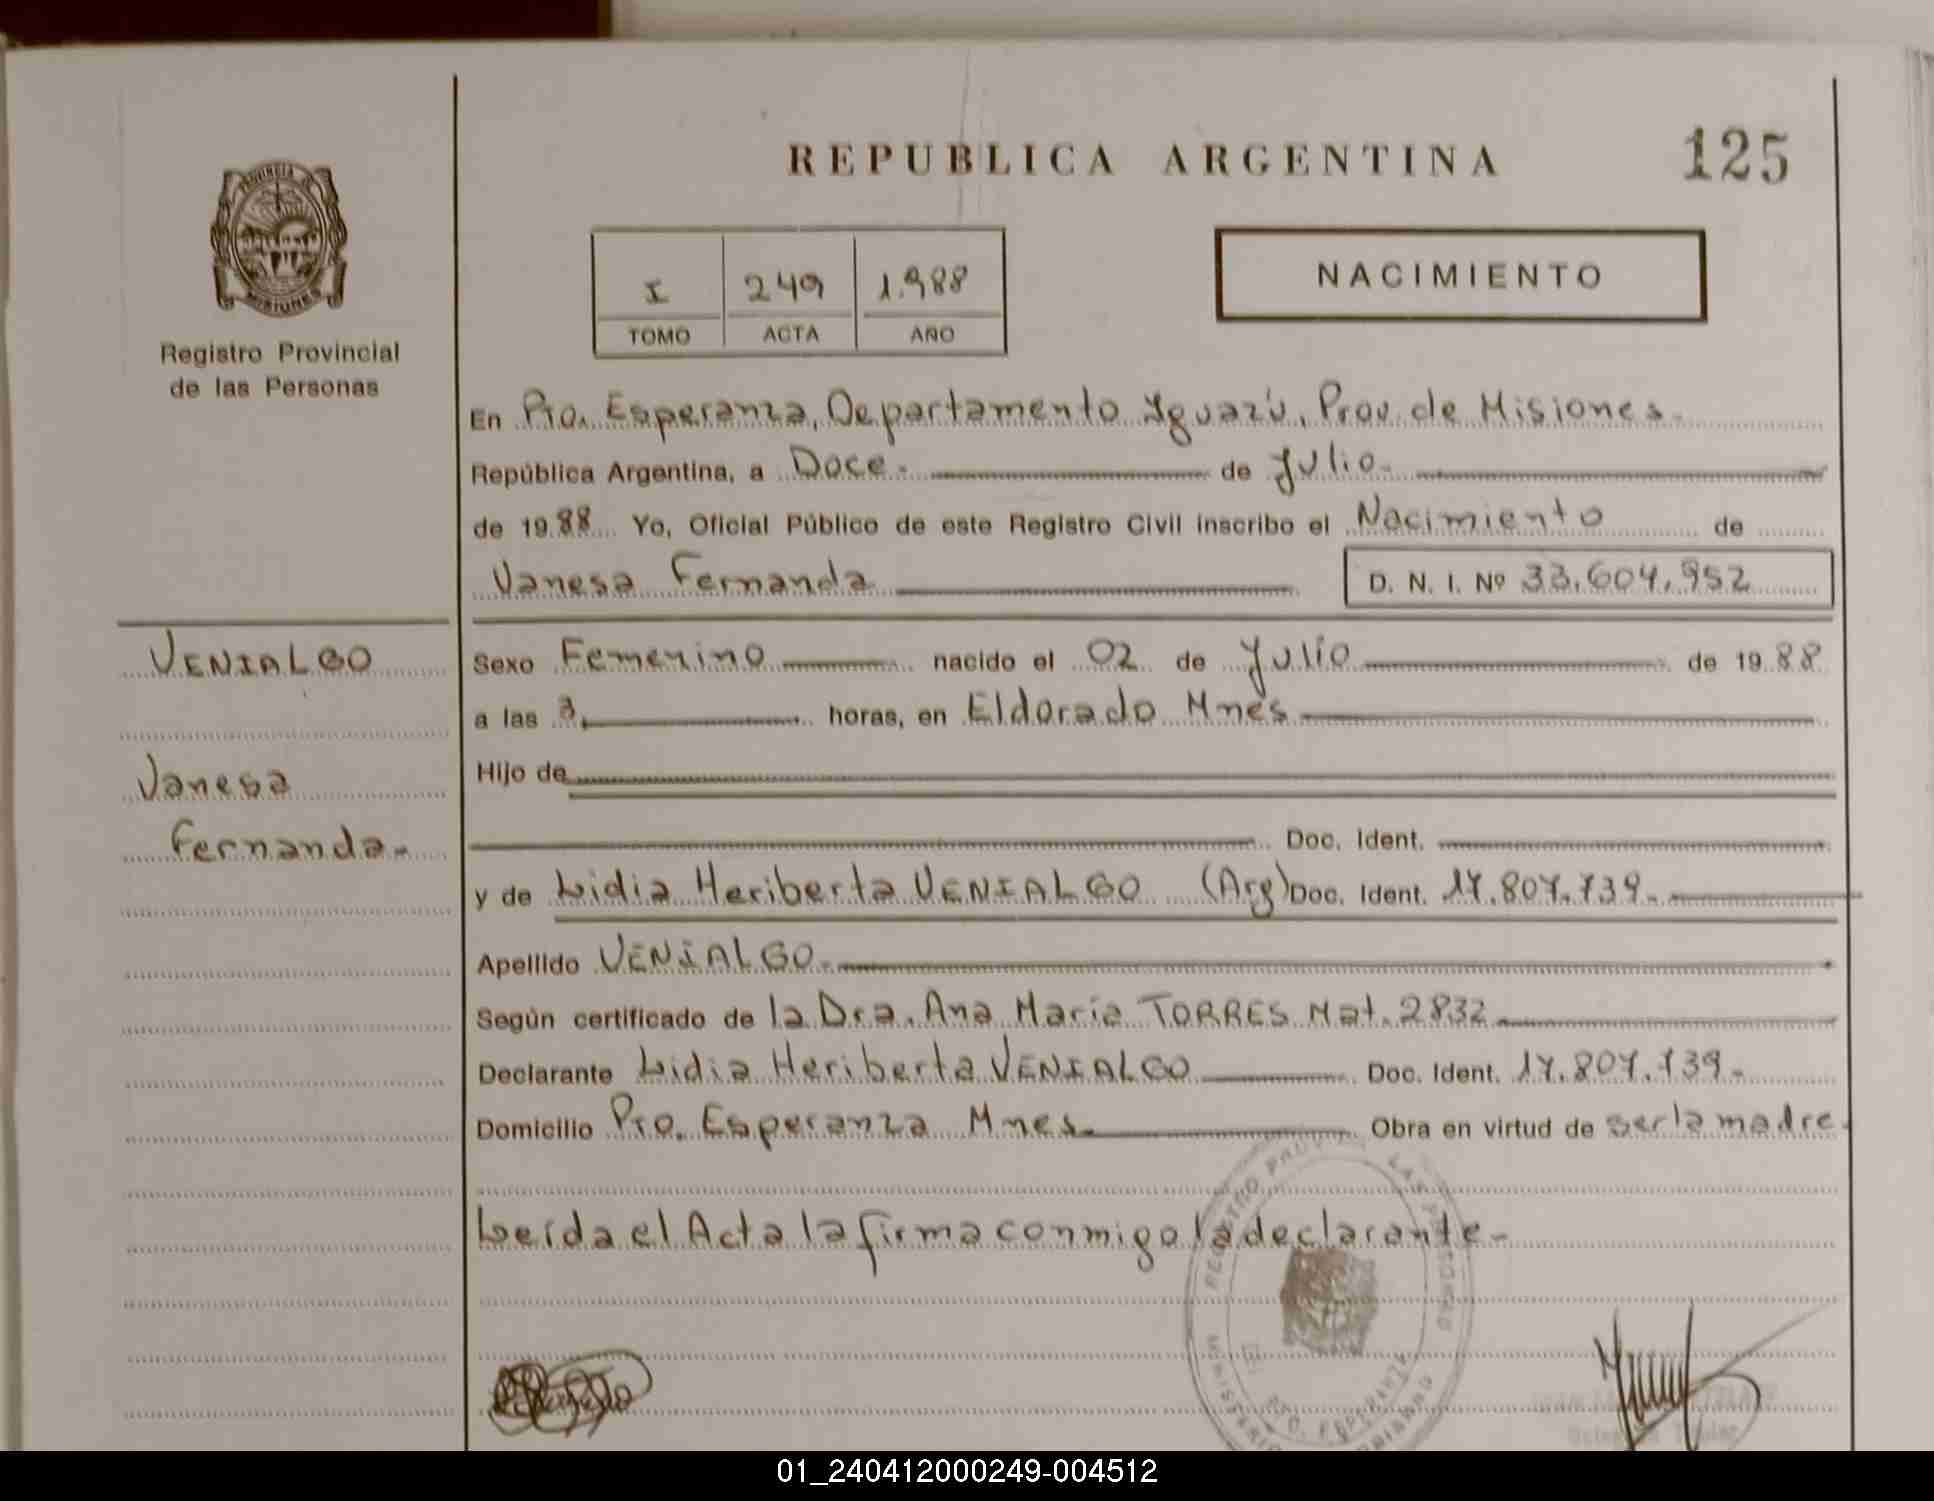 REPUBLICA ARGENTINA
125
PROVINCIA DE
MISIONES
Registro Provincial
de las Personas
I 249 1.988
TOMO ACTA AÑO
NACIMIENTO
En Pto. Esperanza, Departamento Yguazú, Prov. de Misiones.
República Argentina, a Doce. de Julio.
de 1988 Yo, Oficial Público de este Registro Civil inscribo el Nacimiento de
Vanesa Fernanda D. N. I. Nº 33.604.952
VENIALGO
Vanesa
Fernanda.
Sexo Femenino nacido el 02 de Julio de 1988
a las 3, horas, en Eldorado Mnes
Hijo de
Doc. Ident.
y de Lidia Heriberta VENIALGO (Arg) Doc. Ident. 17.807.739.
Apellido VENIALGO.
Según certificado de la Dra. Ana María TORRES Mat. 2832
Declarante Lidia Heriberta VENIALGO Doc. Ident. 17.807.739.
Domicilio Pto. Esperanza Mnes. Obra en virtud de ser la madre.
Leída el Acta la firma conmigo la declarante.
REGISTRO LAS PERSONAS
PTO. ESPERANZA
01_240412000249-004512